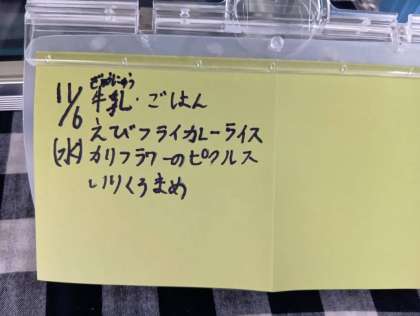 11/6 牛乳・ごはん
ぎゅうにゅう
えびフライカレーライス
(水) カリフラワーのピクルス
いりくろまめ